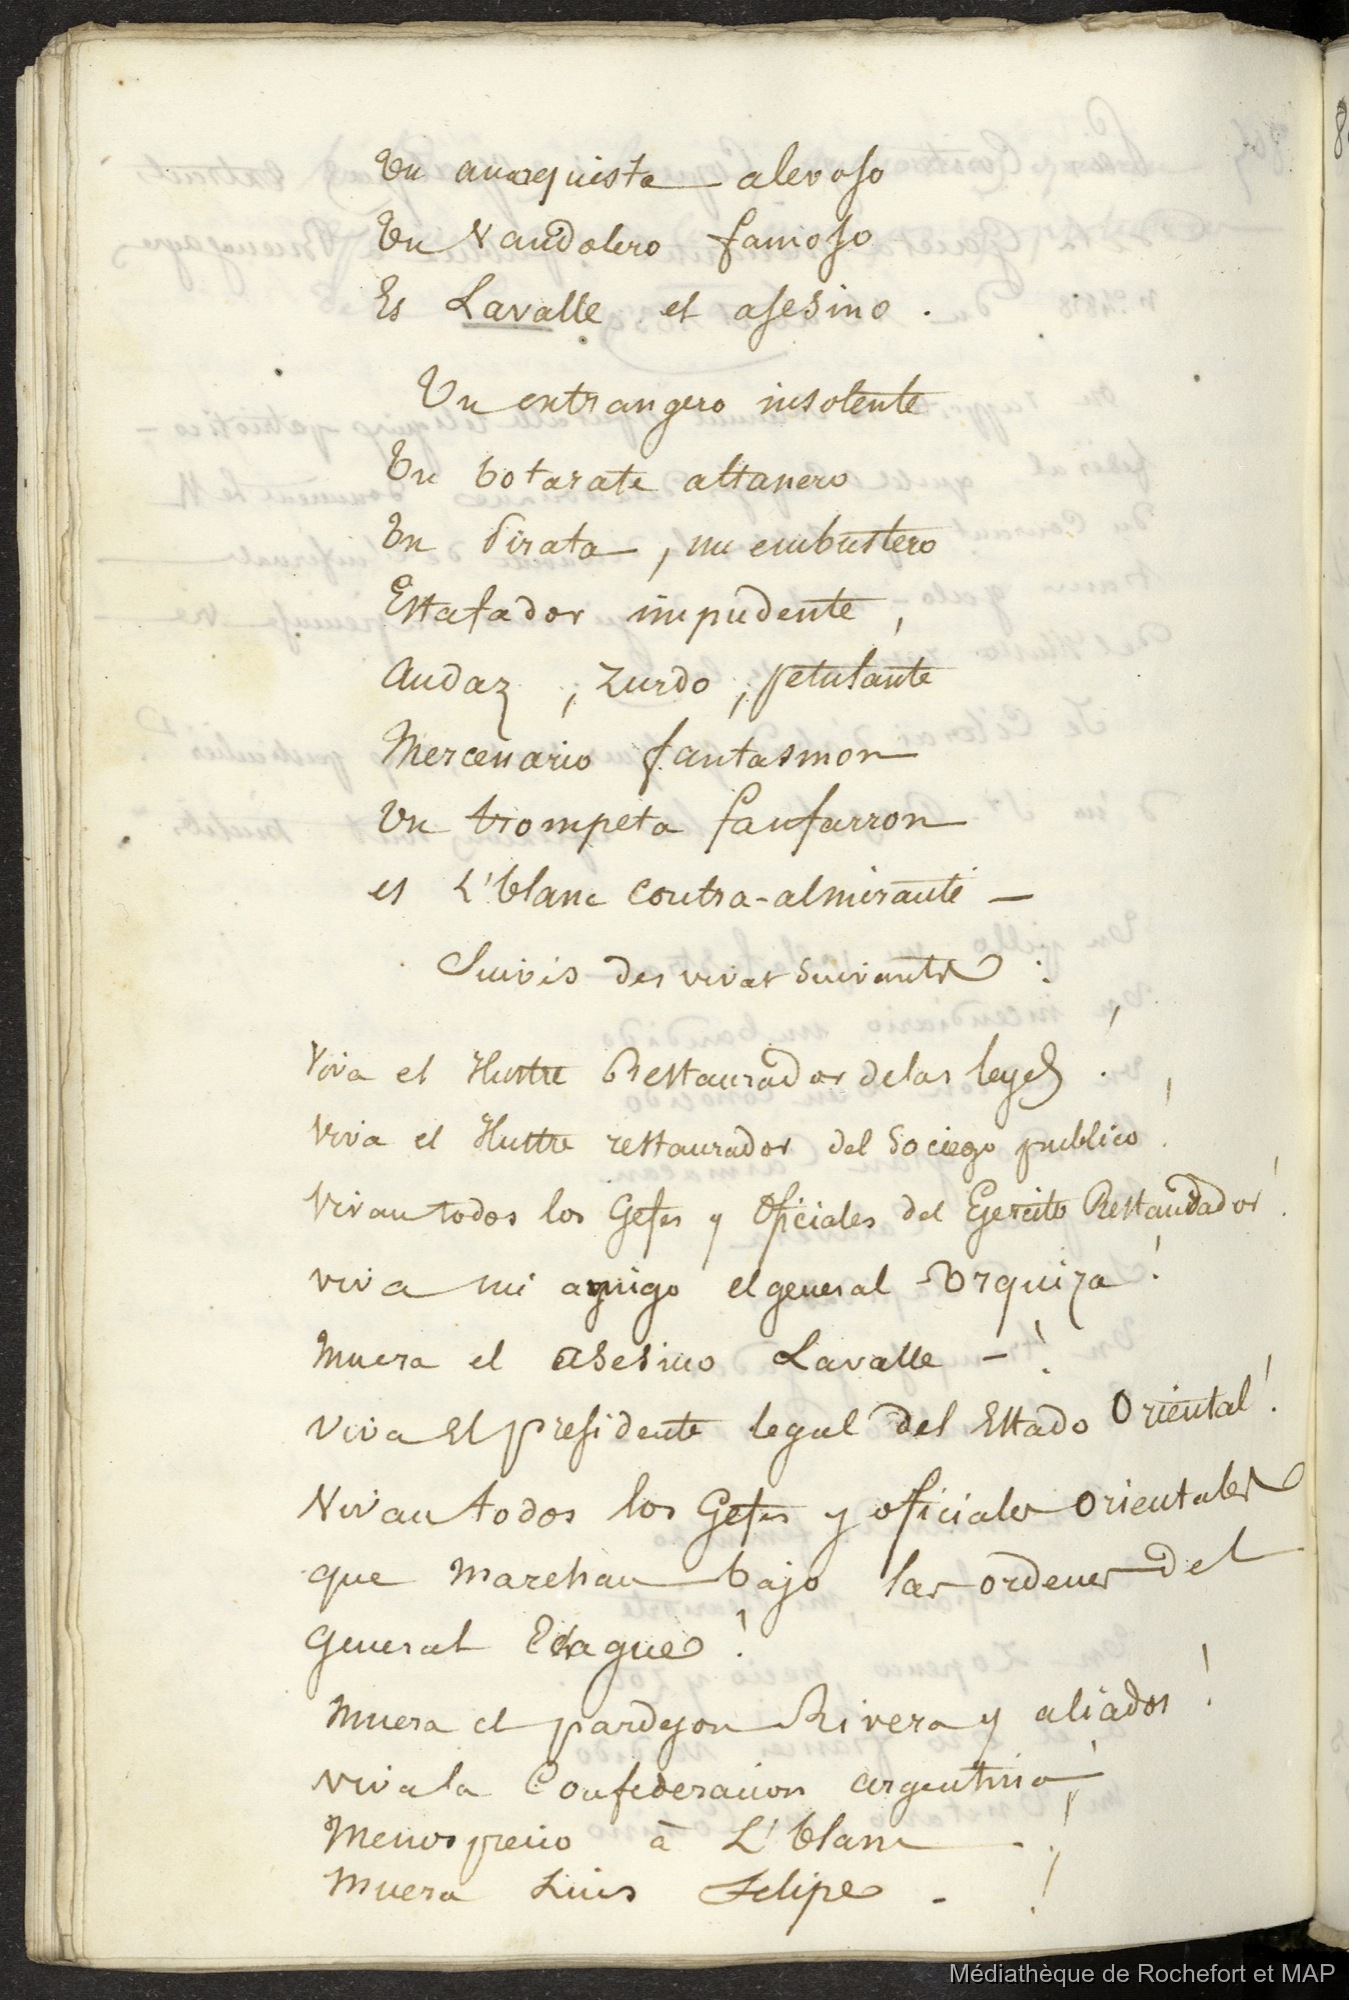 Un anarquista alevoso
Un Vandolero famoso
Es Lavalle el asesino .
Un extrangero insolente
Un botarate altanero
Un Pirata , un embustero
Estafador impudente ,
Audaz , zurdo , petulante
Mercenario fantasmon
Un trompeta fanfarron
es L'blanc contra-almirante —
Suivis des vivas suivants :
Viva el Ilustre Restaurador delas leyes !
Viva el Ilustre restaurador del Sociego publico !
Vivan todos los Gefes y Oficiales del Egercito Restaurador !
viva mi amigo el general Urquiza !
Muera el asesino Lavalle — !
Viva El presidente legal del Estado Oriental !
Vivan todos los Gefes y oficiales orientales
que marchan bajo las ordenes del
general Echague !
Muera el pardejon Rivera y aliados !
viva la Confederacion argentina !
Menosprecio à L'blanc — !
Muera Luis Felipe - !
Médiathèque de Rochefort et MAP